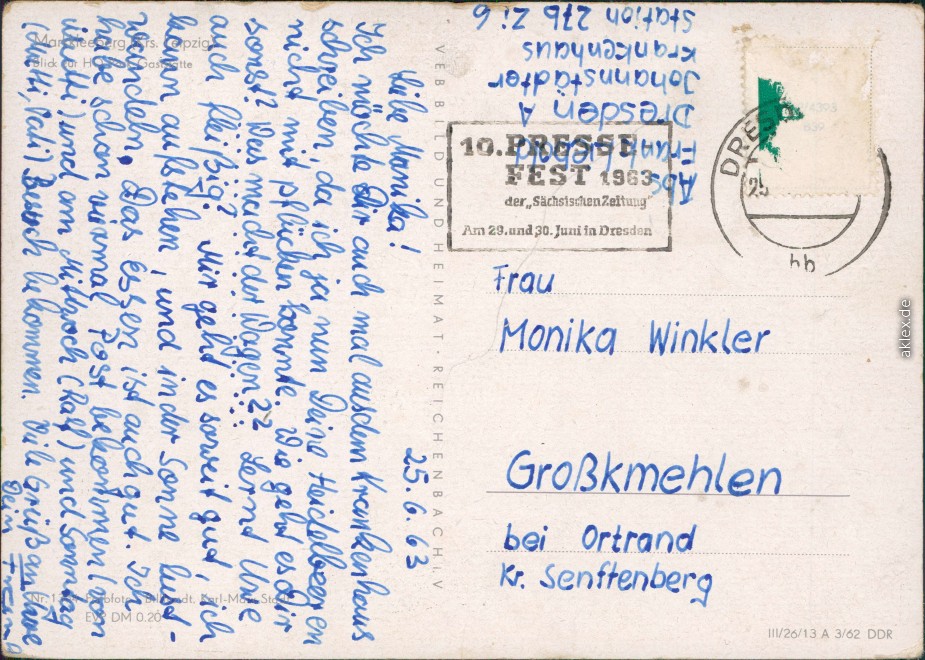 Markkleeberg Krs. Leipzig
Blick zur HO-Gaststätte
25. 6. 63
Liebe Monika!
Ich möchte Dir auch mal aus dem Krankenhaus
schreiben da ich ja nun Deine Heidelbeeren
nicht mit pflücken konnte. Wie geht es dir
sonst? Was macht der Magen?? Lernt Uwe
auch fleißig? Mir geht es soweit gut, ich
kann aufstehen, und in der Sonne lust-
wandeln. Das Essen ist auch gut. Ich
habe schon viermal Post bekommen (von
Mutti) und am Mittwoch (Ralf) und Sonntag
(Mutti, Vati) Besuch bekommen. Viele Grüße an Uwe
Dein
Nr.
Karl-Marx-Stadt
EVP DM 0.20
VEB BILD UND HEIMAT · REICHENBACH I. V
Abs
Frank
Dresden A
Johannstädter
Krankenhaus
Station 27b Zi. 6
10. PRESSE
FEST 1963
der „Sächsischen Zeitung"
Am 29. und 30. Juni in Dresden
DRESD
25
hh
Frau
Monika Winkler
Großkmehlen
bei Ortrand
Kr. Senftenberg
III/26/13 A 3/62 DDR
aklex.de